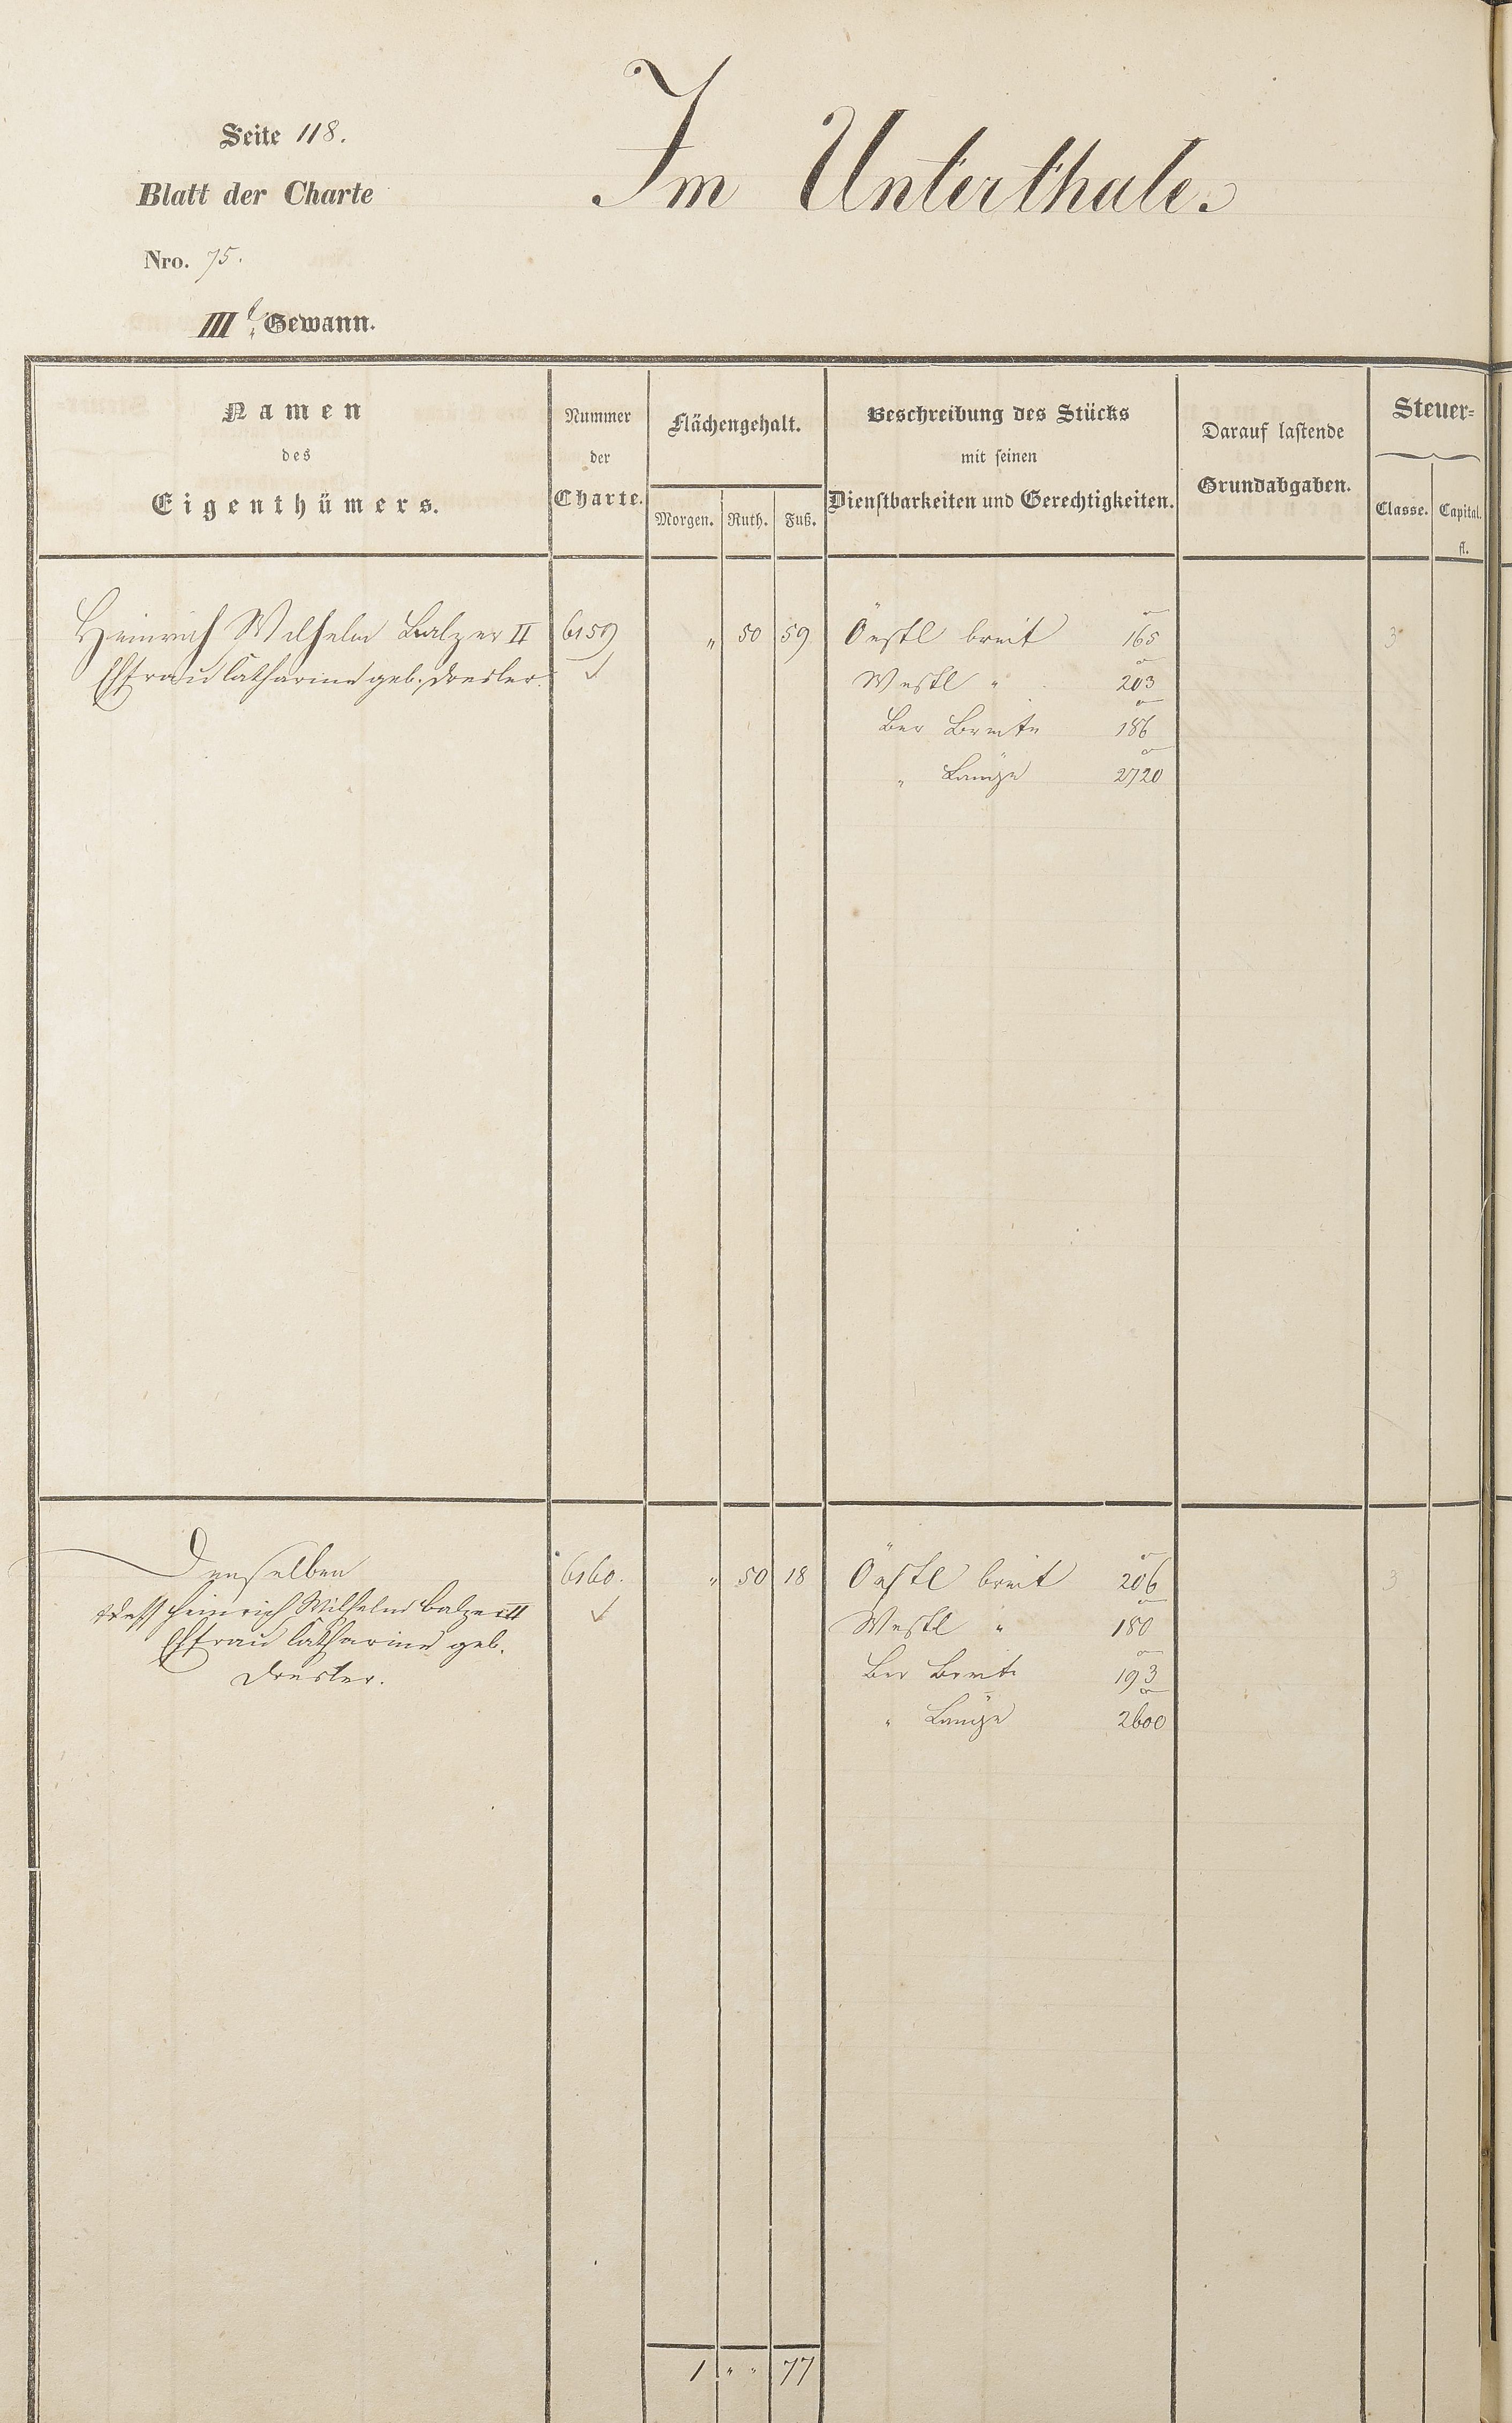 Seite 118.
Blatt der Charte
Nro. 75.
III Gewann.
Im Unterthale.
Namen
des
Eigenthümers.
Nummer
der
Charte.
Flächengehalt.
Morgen. Ruth. Fuß.
Beschreibung des Stücks
mit seinen
Dienstbarkeiten und Gerechtigkeiten.
Darauf lastende
Grundabgaben.
Steuer=
Classe. Capital.
fl.
Heinrich Wilhelm Balzer II 6159 " 50 59 Oestl breit 165 3
Ehfrau Catharine geb. Dresler. Westl " 203
Ber Breite 186
" Länge 2720
Denselben 6160. " 50 18 Oestl breit 206 3
Heinrich Wilhelm Balzer II Westl " 180
Ehfrau Catharine geb. Ber Breite 193
Dresler. " Länge 2600
1 " " 77